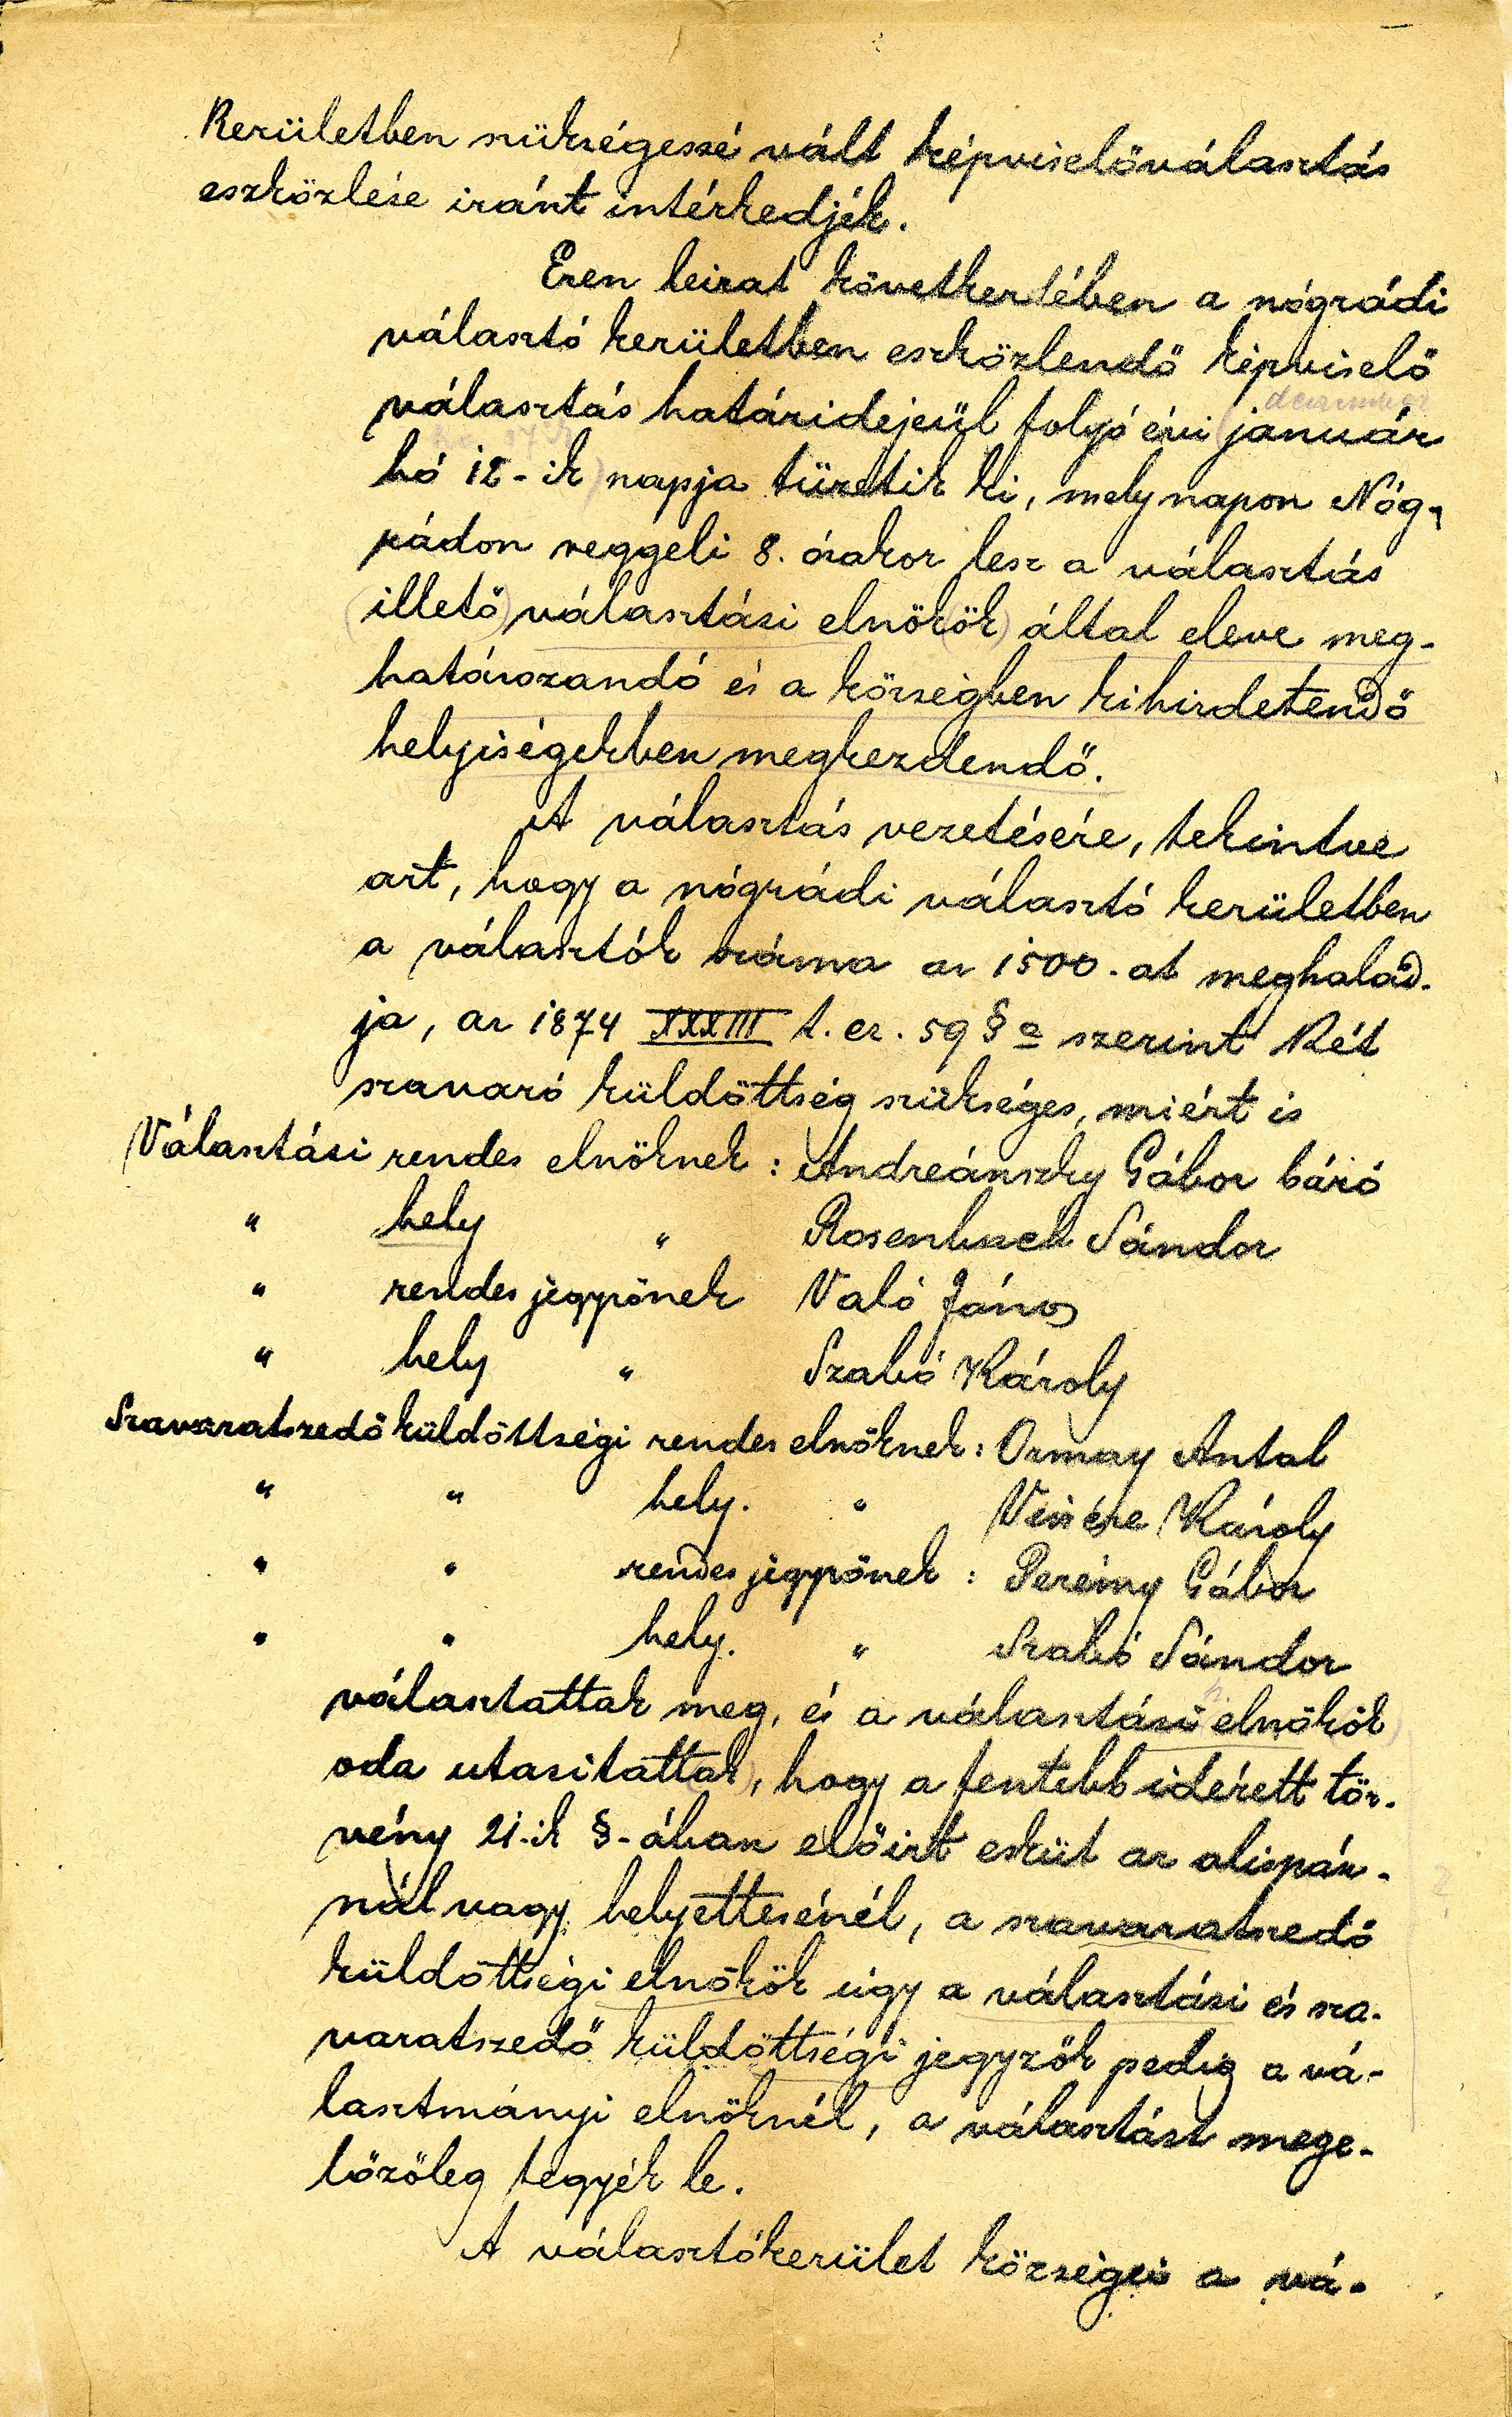 Kerületben szükségessé vált képviselőválasztás
eszközlése iránt intézkedjék.
Ezen leirat következtében a nógrádi
választó kerületben eszközlendő képviselő
december
választás határidejeül folyó évi január
hó 12-ik napja tüzetik ki, mely napon Nóg-
rádon reggeli 8. órakor lesz a választás
(illető) választási elnök(ök) által eleve meg-
határozandó és a községben kihirdetendő
helyiségekben megkezdendő.
A választás vezetésére, tekintve
azt, hogy a nógrádi választó kerületben
a választók száma az 1500.-at meghalad-
ja, az 1874 XXXIII t. cz. 59 § a szerint Két
szavazó küldöttség szükséges, miért is
Választási rendes elnöknek : Andreánszky Gábor báró
" hely " Rosenbach Sándor
" rendes jegyzőnek Való János
" hely " Szabó Károly
Szavazatszedő küldöttségi rendes elnöknek : Ormay Antal
" " hely. " Károly
" " rendes jegyzőnek : Perémy Gábor
" " hely. " Szabó Sándor
választattak meg, és a választási elnökök
oda utasitattak, hogy a fentebb idézett tör-
vény 21-ik §-ában előirt esküt az alispán-
nál vagy helyettesénél, a szavazatszedő
küldöttségi elnökök úgy a választási és sza-
vazatszedő küldöttségi jegyzők pedig a vá-
lasztmányi elnöknél, a választást mege-
lőzőleg tegyék le.
A választókerület községei a vá-